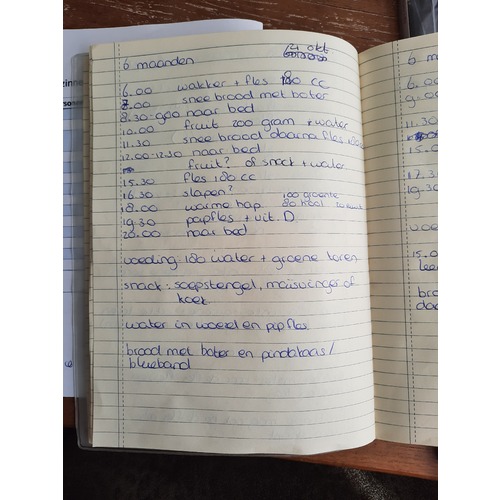 21 okt
6 maanden
6.00 wakker + fles 180 cc
7.00 snee brood met boter
8.30-9.00 naar bed
10.00 fruit 200 gram + water
11.30 snee brood daarna fles
12.00-12.30 naar bed
fruit? of snack + water
15.30 fles 180 cc
16.30 slapen? 100 groente
18.00 warme hap 80
19.30 papfles + vit. D
20.00 naar bed
voeding: 180 water + groene toren
snack: soepstengel, maisvinger of
koek.
water in en papfles.
brood met boter en pindakaas/
blueband
zinne
6 maan
6.00
9.00
11.30
15.0
17.3
19.30
voe
15.0
bro